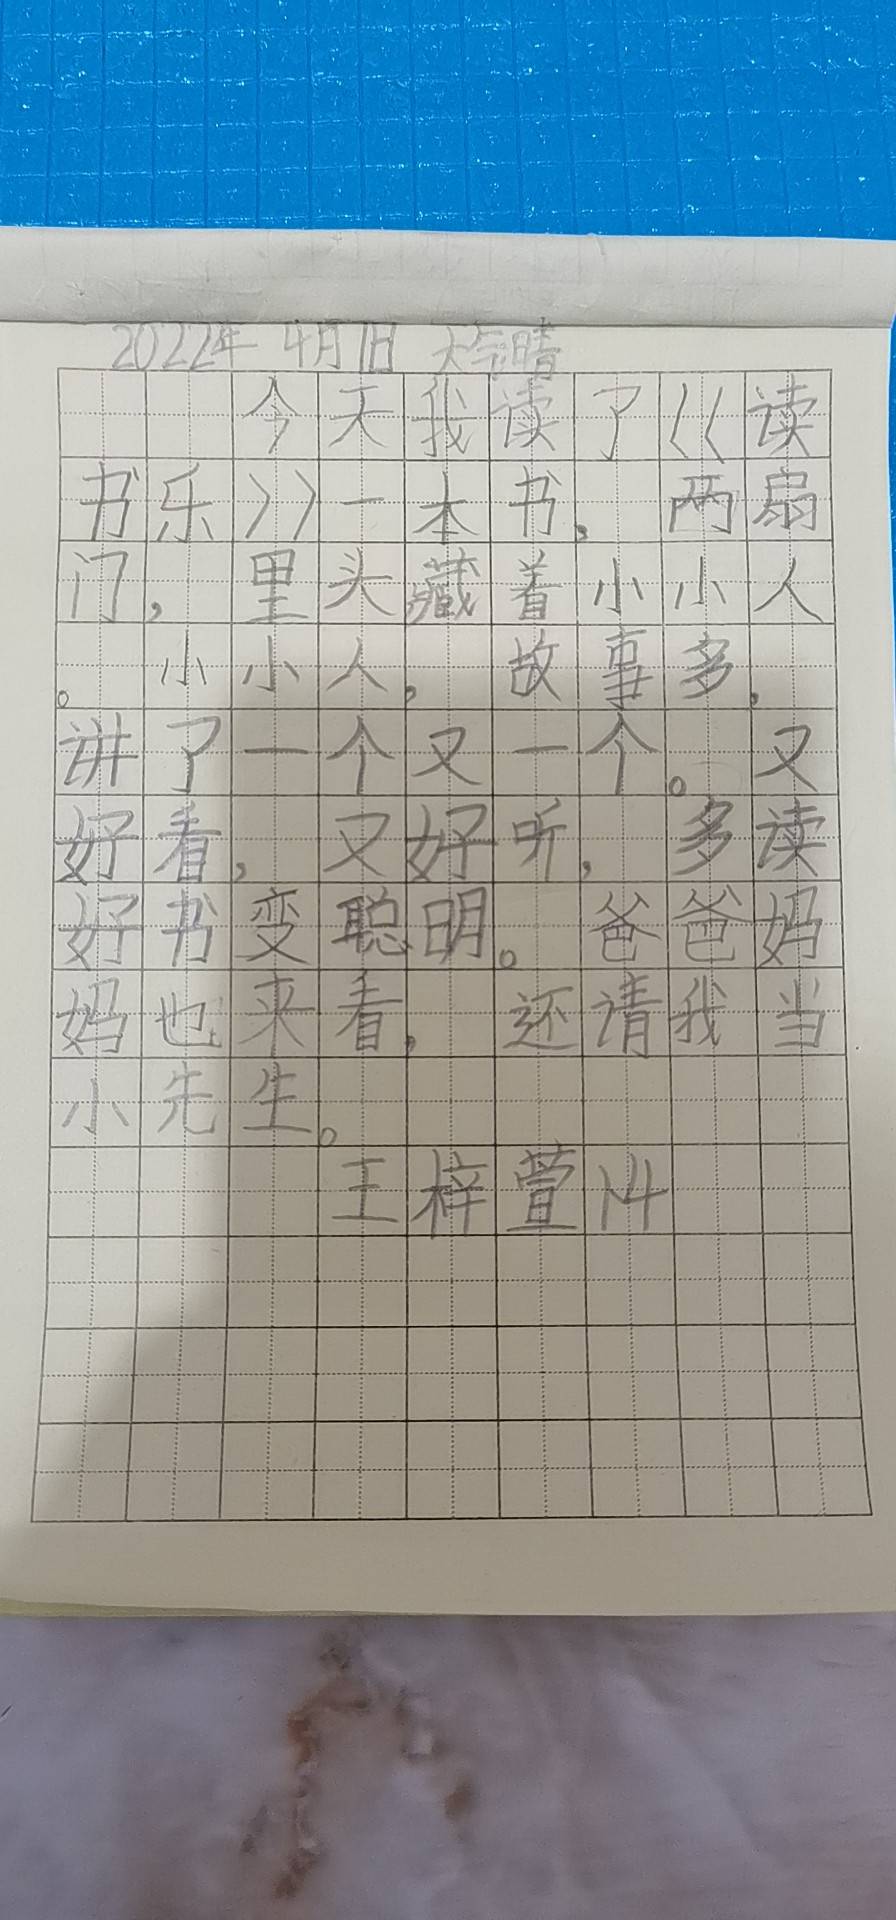 2022年 4月1日 天气晴
今天我读了《读
书乐》一本书，两扇
门，里头藏着小小人
。小小人，故事多，
讲了一个又一个。又
好看，又好听，多读
好书变聪明。爸爸妈
妈也来看，还请我当
小先生。
王梓萱14